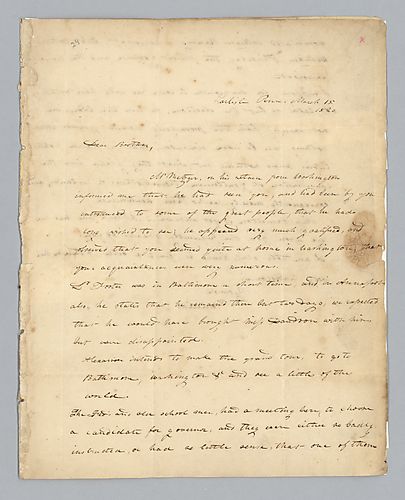 29
Carlisle Penn. March 15
1820
Dear Brother,
Mr Metzger, on his return from Washington
informed me that he had seen you, and had been by you
introduced to some of the great people, that he had
long wished to see; he appeared very much gratified, and
observes that you seemed quite at home in Washington, that
your acquaintances were very numerous.
Dr Foster was in Baltimore a short time and in
also, he states that he remained there but two days, we expected
that he would have brought Miss with him
but were disappointed.
intends to make the grand tour, to go to
Baltimore, Washington &c and see a little of the
world.
The and old school men, had a meeting here, to choose
a candidate for governor, and they were either so badly
instructed, or had so little sense, that one of them